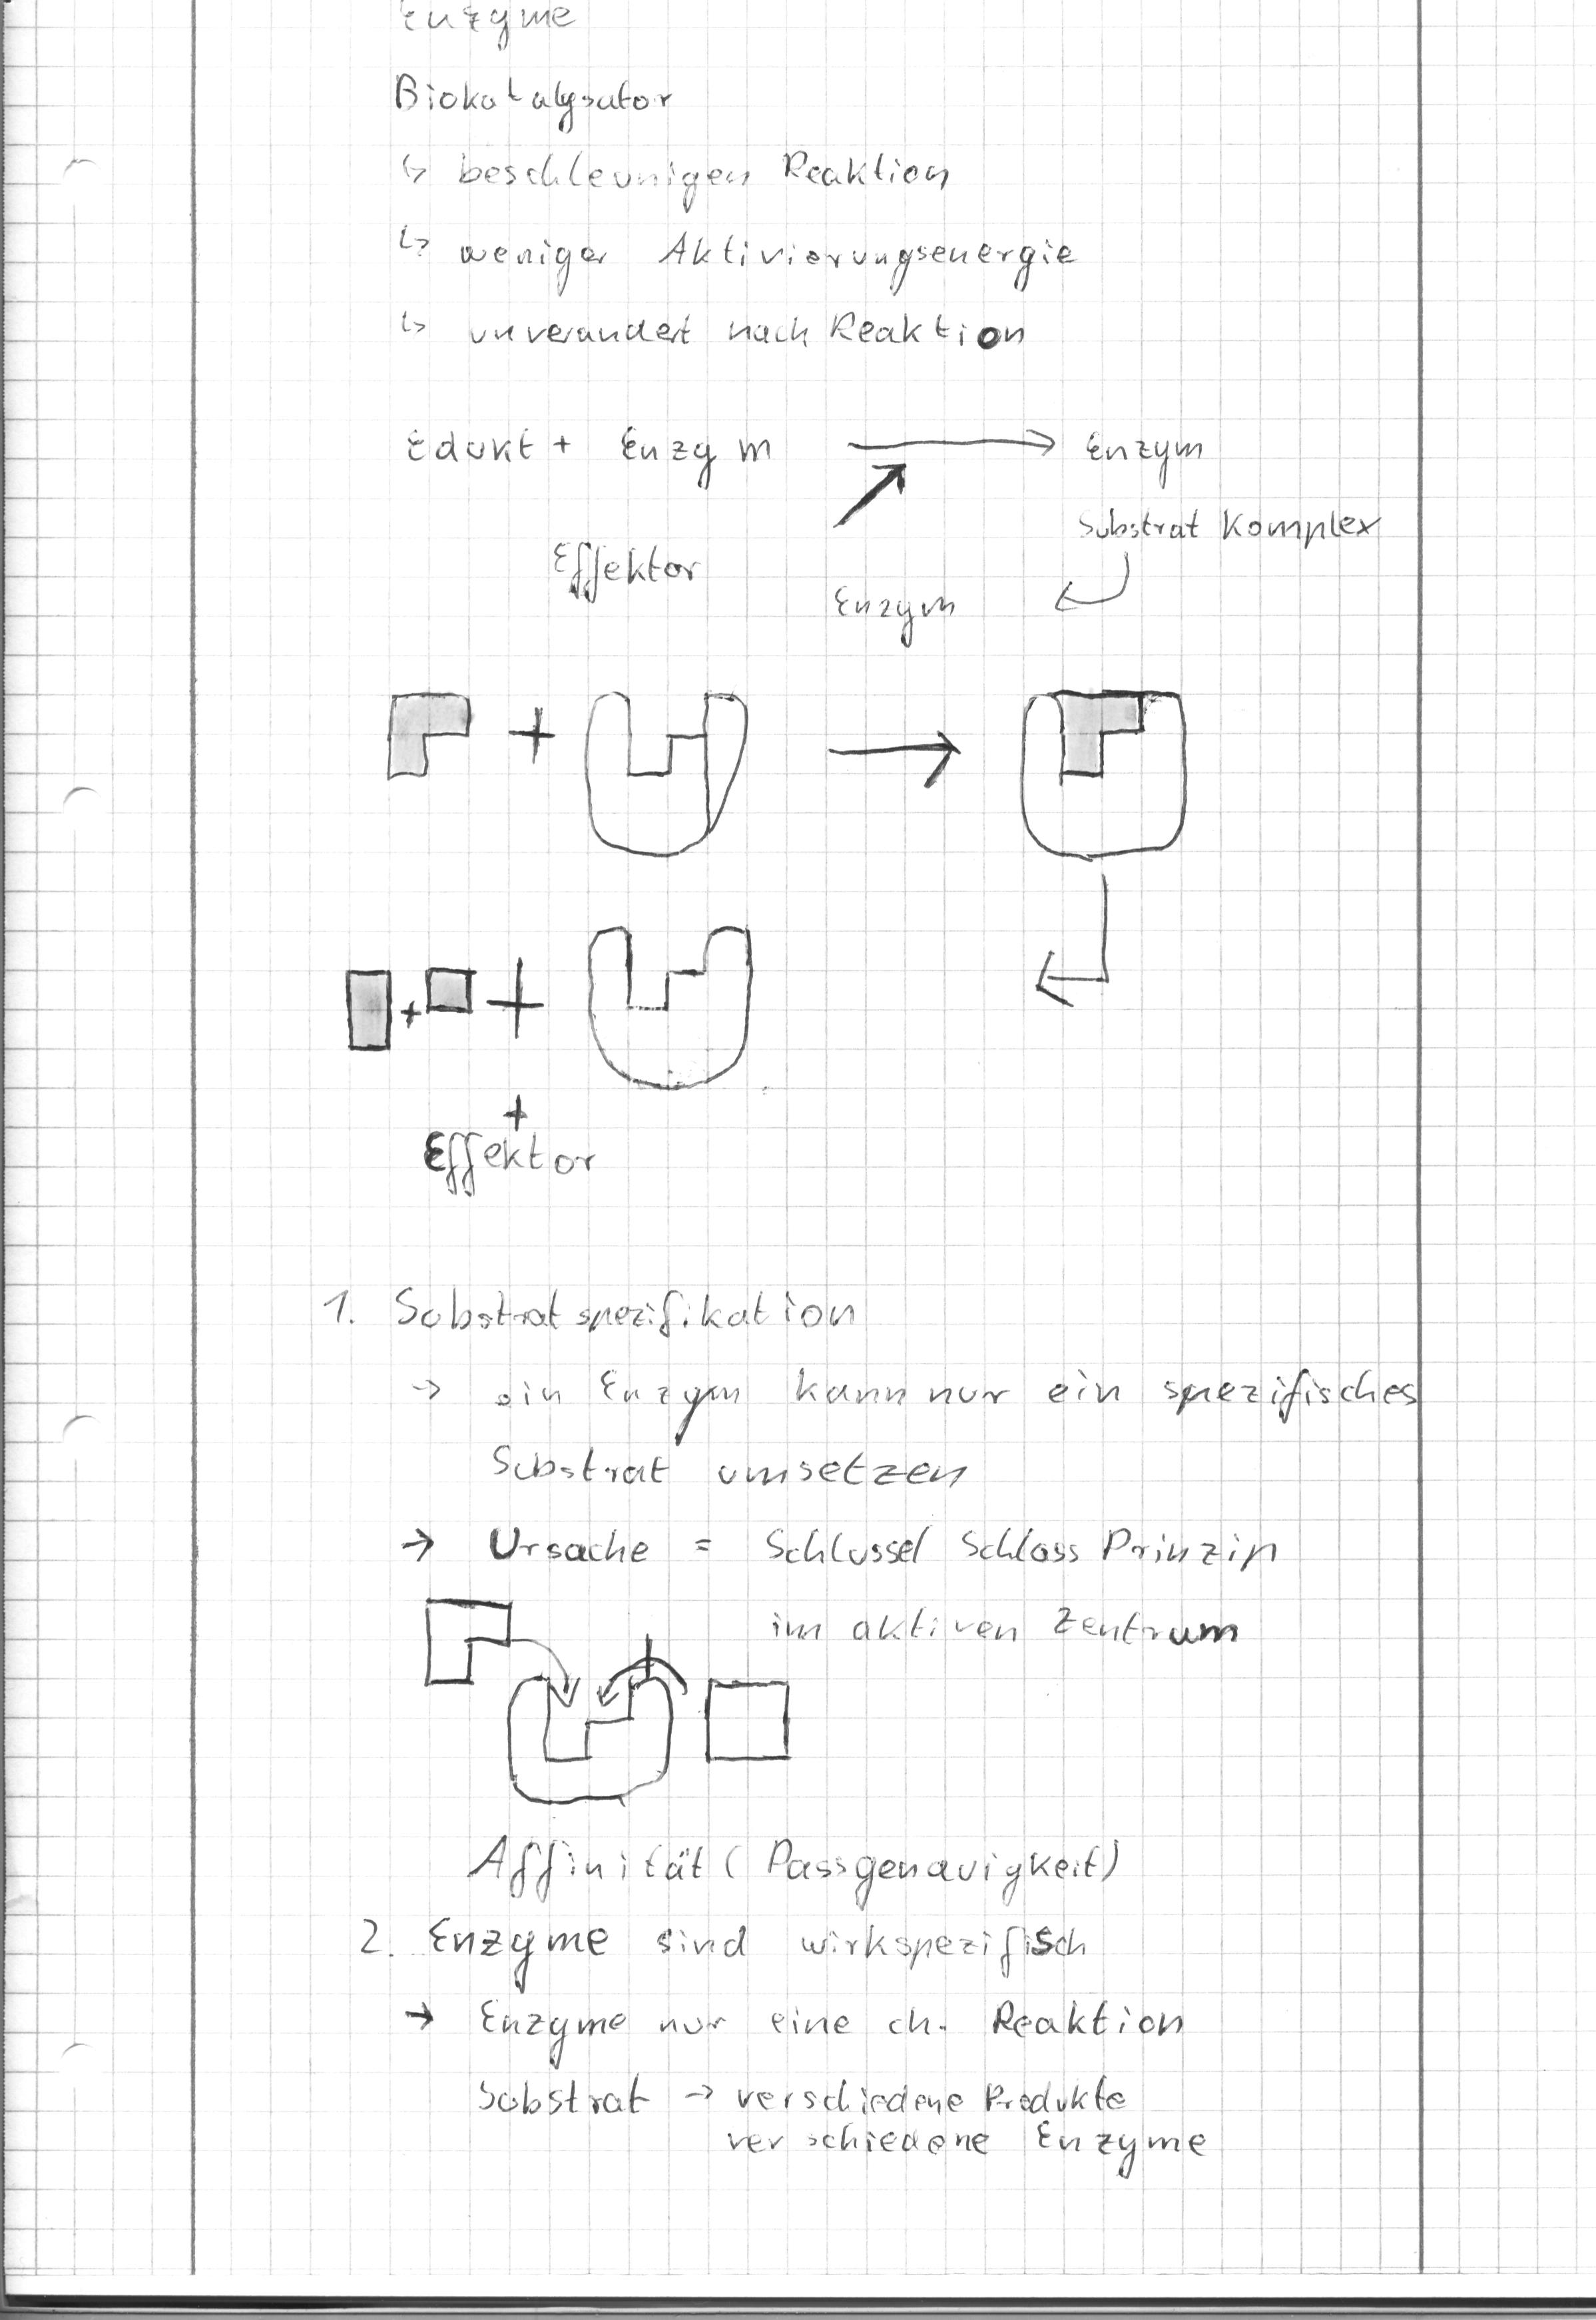 Enzyme
Biokatalysator
↳ beschleunigen Reaktion
↳ weniger Aktivierungsenergie
↳ unverandert nach Reaktion
Edukt + Enzym → Enzym
Substrat Komplex
Effektor
Enzym
+ →
+ +
+
Effektor
1. Substratspezifikation
→ ein Enzym kann nur ein spezifisches
Substrat umsetzen
→ Ursache = Schlussel Schloss Prinzip
im aktiven Zentrum
Affinität (Passgenauigkeit)
2. Enzyme sind wirkspezifisch
→ Enzyme nur eine ch. Reaktion
Substrat → verschiedene Produkte
verschiedene Enzyme